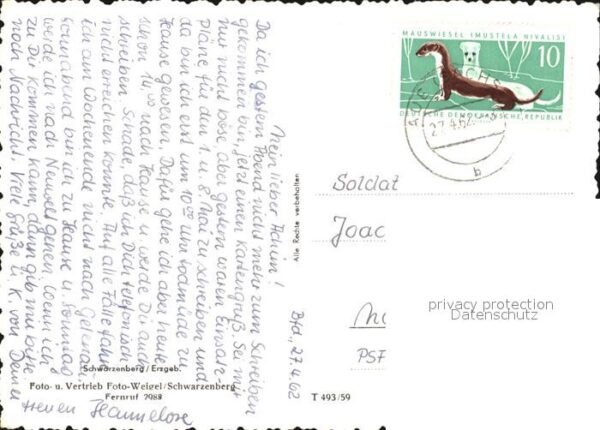 MAUSWIESEL (MUSTELA NIVALIS)
10
DEUTSCHE DEMOKRATISCHE REPUBLIK
27.4.62
b
Mein lieber Achim!
Da ich gestern Abend nicht mehr zum Schreiben
gekommen bin, jetzt einen Kartengruß. Sei mir
nur nicht böse, aber gestern waren Einsatz-
Pläne für den 1. u. 8. Mai zu schreiben und
da bin ich erst um 10°° Uhr todmüde zu
Hause gewesen. Dafür gehe ich aber heute
schon 14.00 nach Hause u. werde Dir auch
schreiben. Schade, daß ich Dich telefonisch
nicht erreichen konnte. Auf alle Fälle fahre
ich am Wochenende nicht nach Gelenau.
Sonnabend bin ich zu Hause u. Sonntag
werde ich nach Neuwelt gehen. Wenn ich
zu Dir kommen kann, dann gib mir bitte
noch Nachricht. Viele Grüße u. K. von Deiner
treuen Hannelore
Schwarzenberg / Erzgeb.
Foto- u. Vertrieb Foto-Weigel/Schwarzenberg
Fernruf 2088
Alle Rechte vorbehalten
27.4.62
T 493/59
Soldat
Joac
PSF
privacy protection
Datenschutz